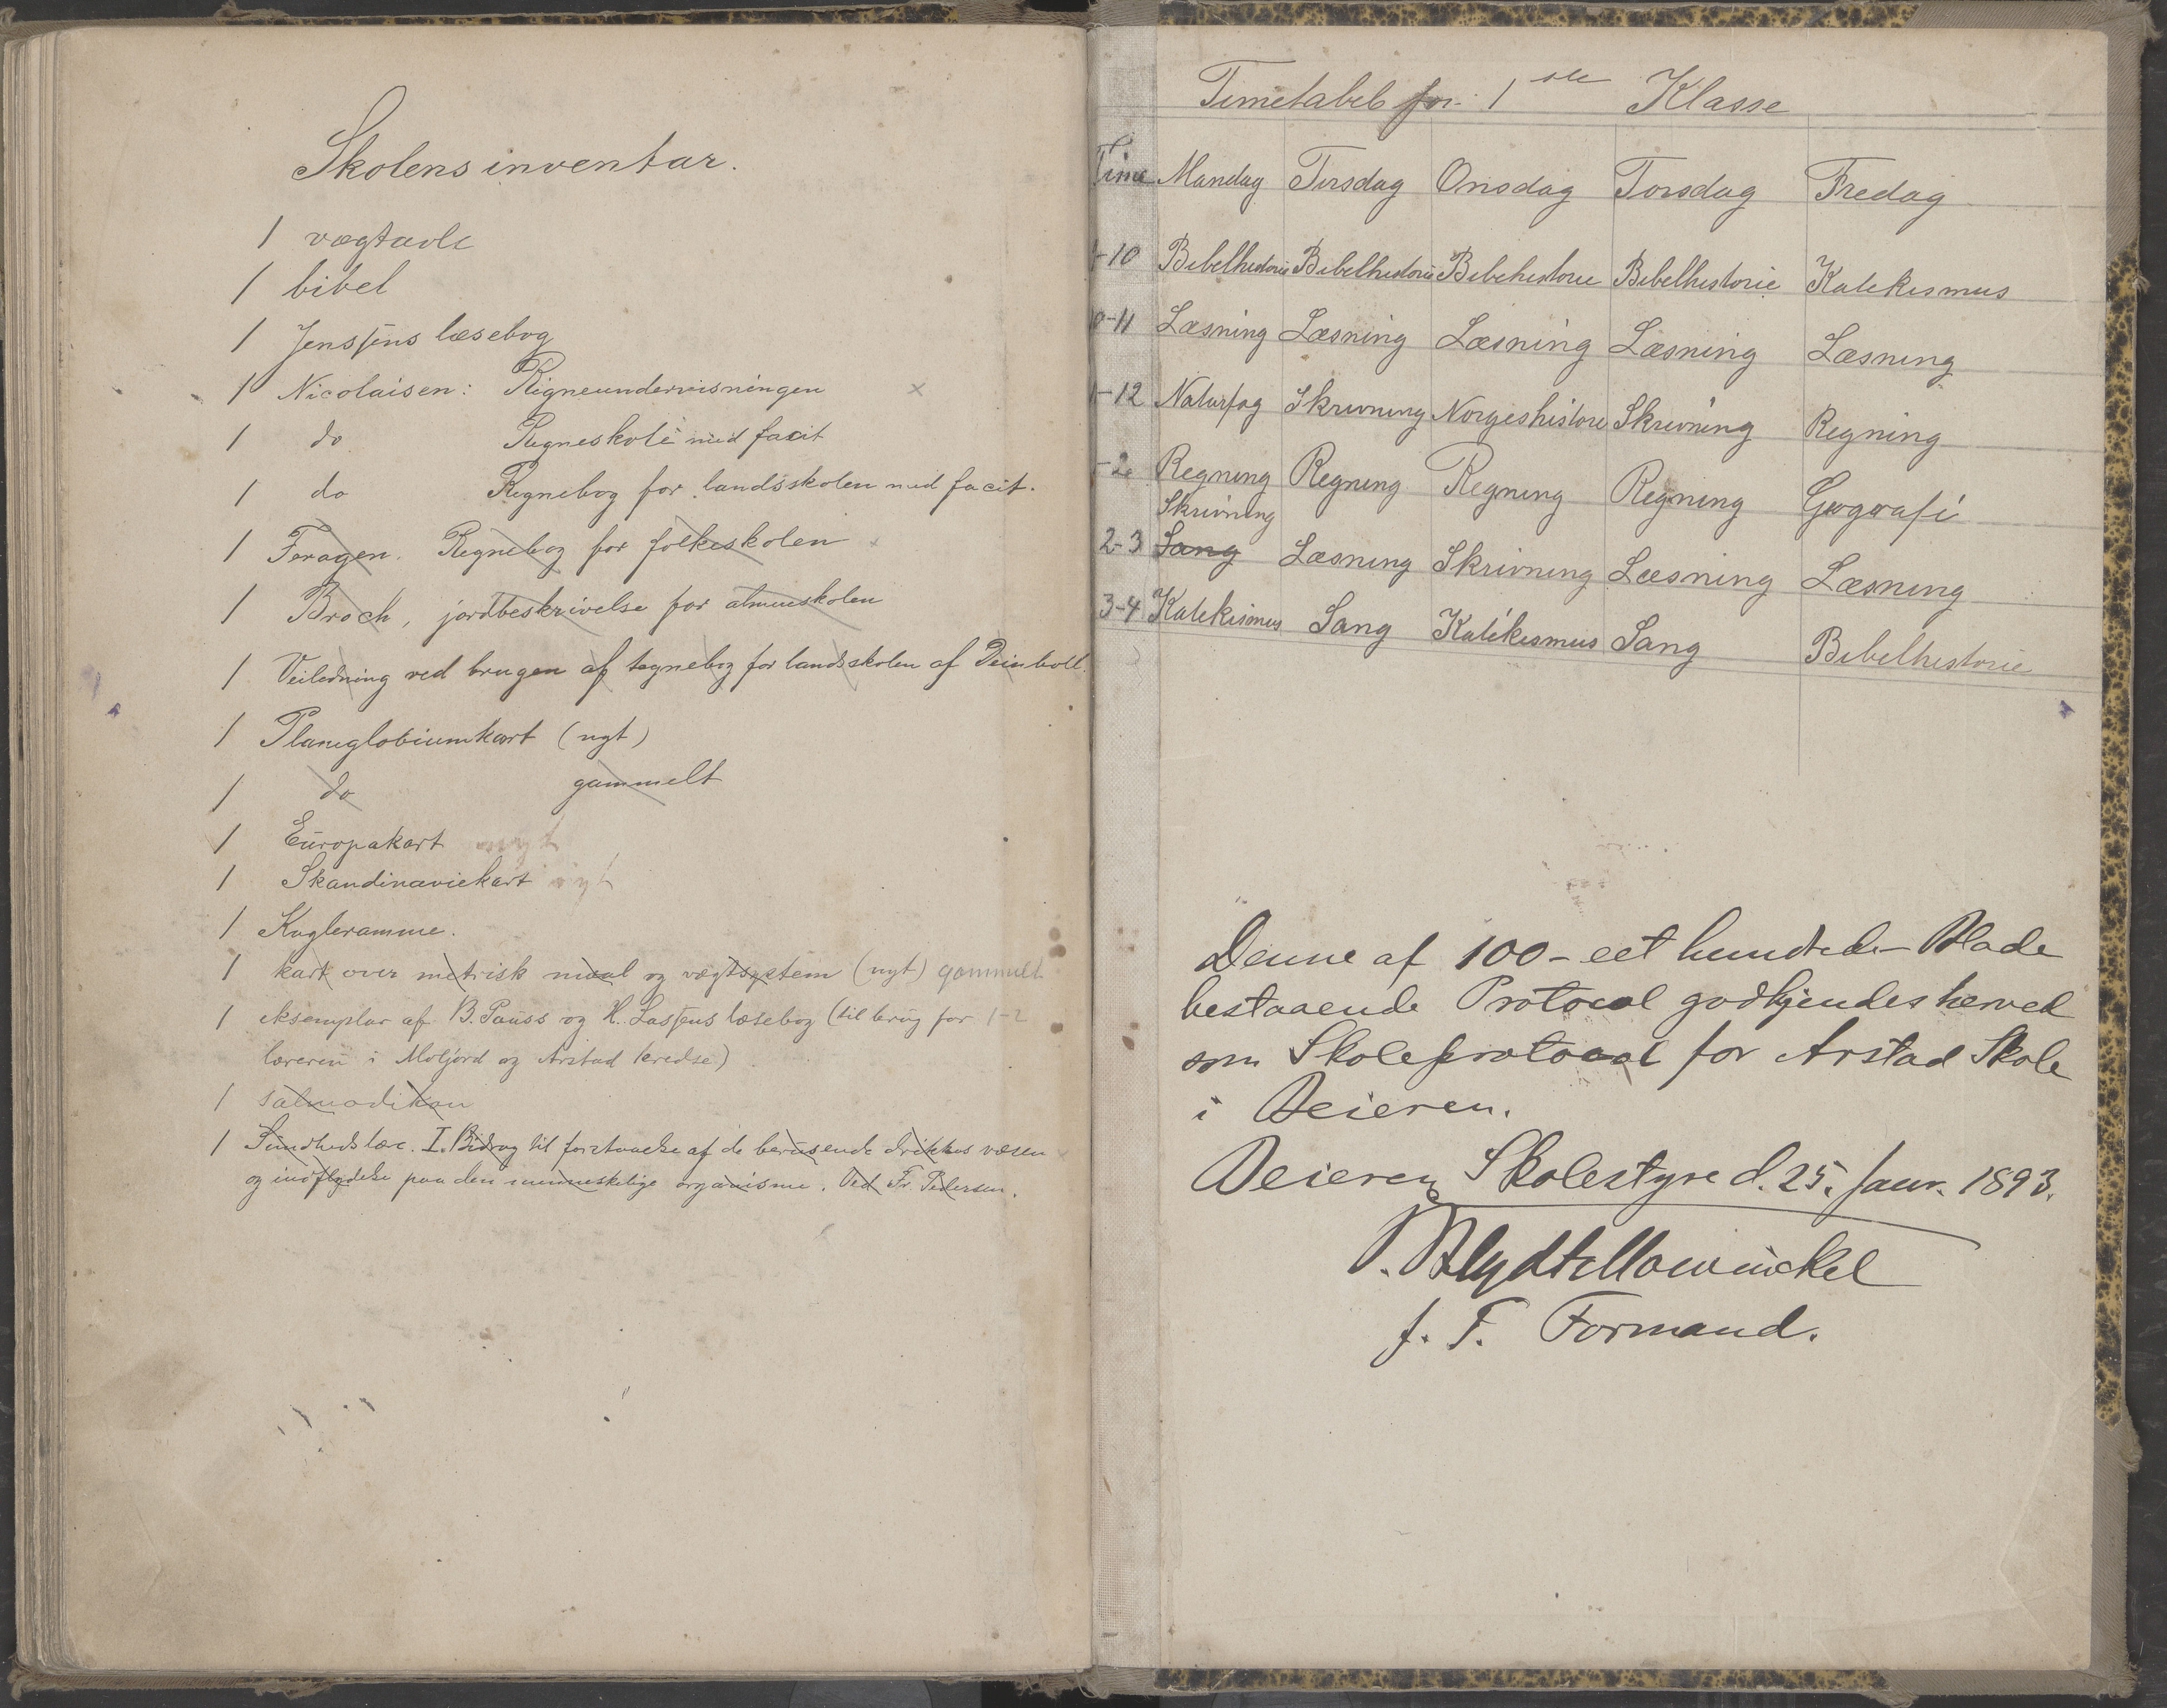 Skolens inventar.
1 vægtavle
1 bibel
1 Jensens læsebog
1 Nicolaisen: Regneundervisningen x
1 do Regneskole med facit
1 do Regnebog for landsskolen med facit.
1 Feragen. Regnebog for folkeskolen x
1 Broch, jordbeskrivelse for almueskolen
1 Veiledning ved brugen af tegnebog for landsskolen af Deinboll.
1 Planiglobiumkart (nyt)
1 do gammelt
1 Europakart nyt
1 Skandinaviekart nyt
1 Kugleramme.
1 kart over metrisk maal og vægtsystem (nyt) gammelt
1 eksemplar af B. Pauss og H. Lassens læsebog (til brug for 1-2
læreren i Moljord og Arstad kredse)
1 salmodikon
1 Sundhedslære. I. Bidrag til forstaaelse af de berusende drikkes væsen
og indflydelse paa den menneskelige organisme. Ved Fr. Pedersen.
Timetabel for 1ste Klasse
Time Mandag Tirsdag Onsdag Torsdag Fredag
-10 Bibelhistorie Bibelhistorie Bibehistorie Bibelhistorie Katekismus
0-11 Læsning Læsning Læsning Læsning Læsning
1-12 Naturfag Skrivning Norgeshistorie Skrivning Regning
-2 Regning Regning Regning Regning Geografi
Skrivning
2-3 Sang Læsning Skrivning Læsning Læsning
3-4 Katekismus Sang Katekismus Sang Bibelhistorie
Denne af 100 - eet hundrede - Blade
bestaaende Protocol godkjendes herved
som Skoleprotocol for Arstad Skole
i Beieren.
Beieren Skolestyre d. 25. Janr. 1893.
Blydt Mowinckel
f. T. Formand.